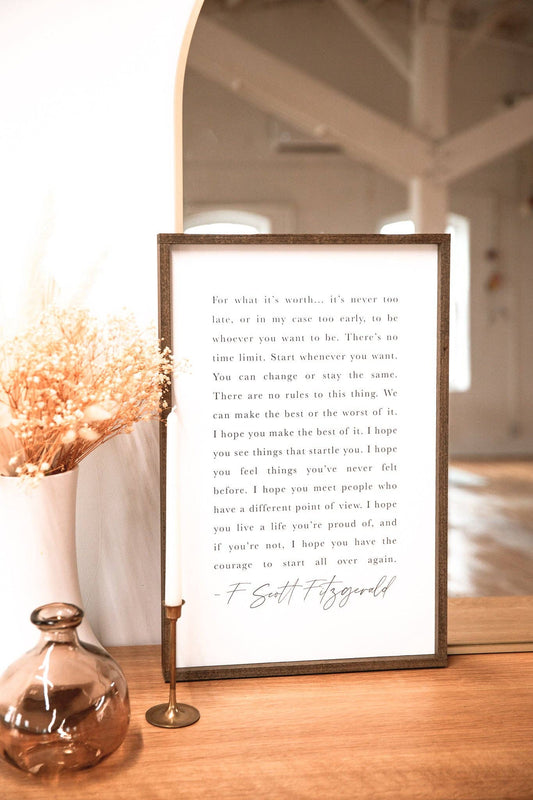 For what it's worth... it's never too
late, or in my case too early, to be
whoever you want to be. There's no
time limit. Start whenever you want.
You can change or stay the same.
There are no rules to this thing. We
can make the best or the worst of it.
I hope you make the best of it. I hope
you see things that startle you. I hope
you feel things you've never felt
before. I hope you meet people who
have a different point of view. I hope
you live a life you're proud of, and
if you're not, I hope you have the
courage to start all over again.
- F Scott Fitzgerald